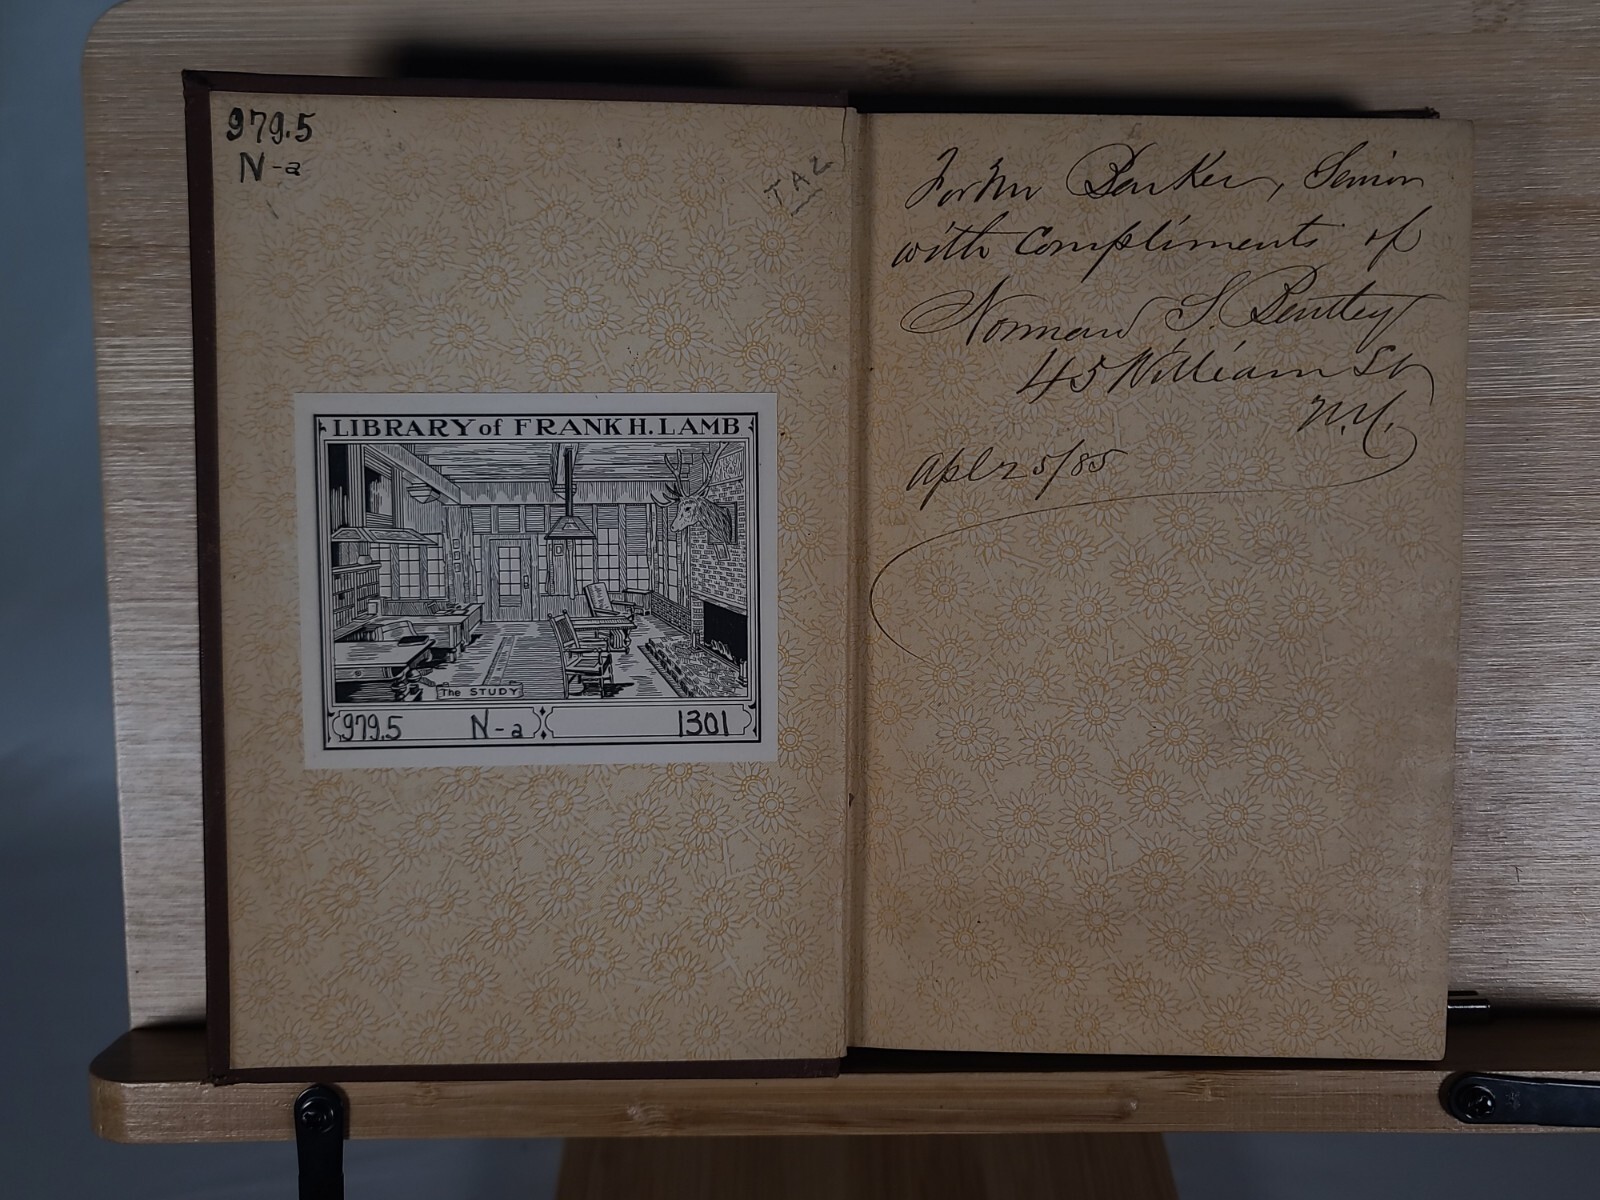 979.5
N-a
TA2
LIBRARY of FRANK H. LAMB
The STUDY
979.5 N-a 1301
For Mr Barker, Senior
with compliments of
Norman S. Bentley
45 William St
N.Y.
Apl 25/85